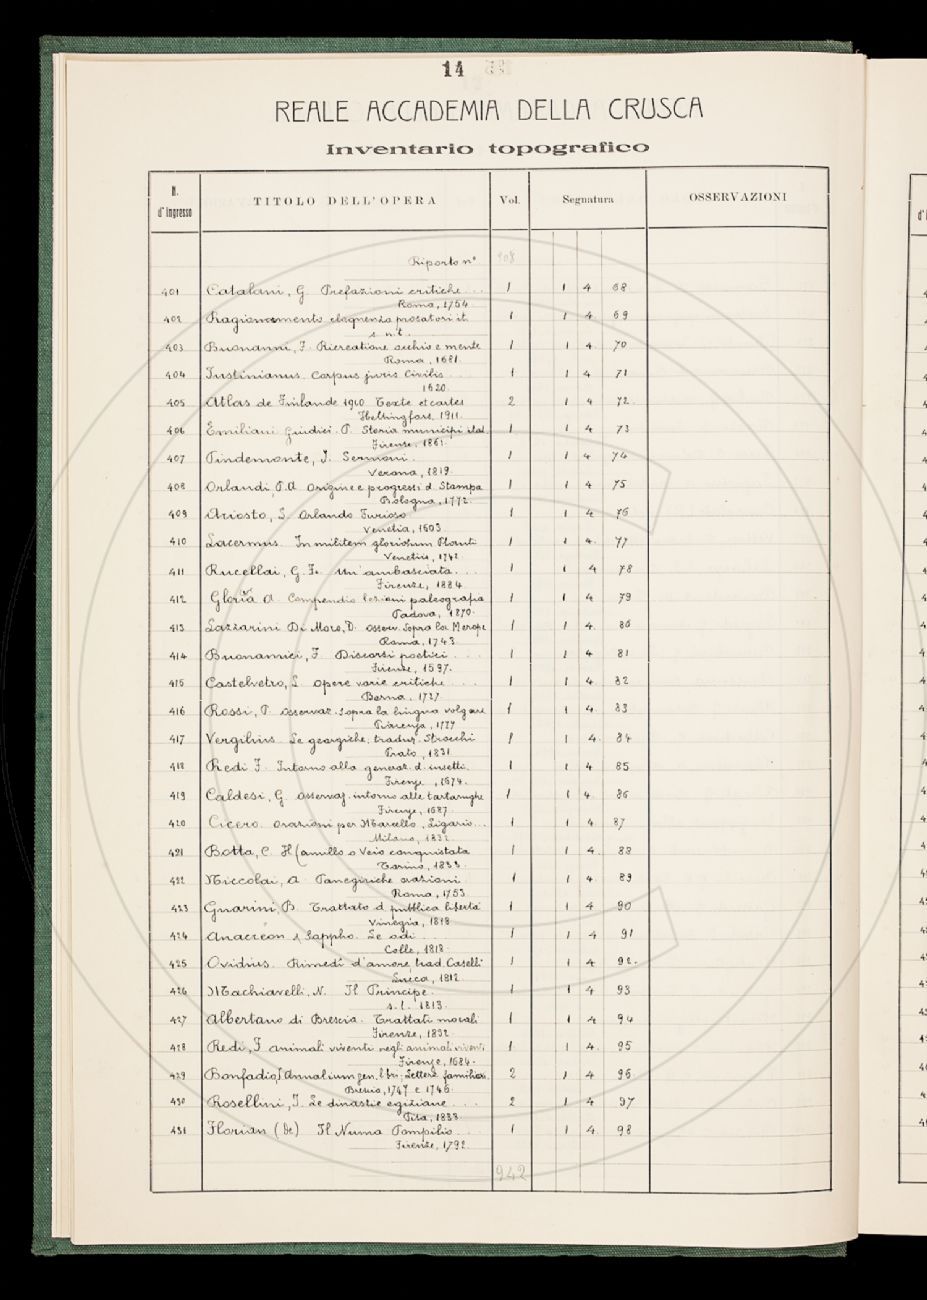 14
REALE ACCADEMIA DELLA CRUSCA
Inventario topografico
N. d'Ingresso TITOLO DELL'OPERA Vol. Segnatura OSSERVAZIONI
Riporto n° 908
401 Catalani, G. Prefazioni critiche ... 1 1 4 68
Roma, 1754
402 Ragionamento eloquenza prosatori it. 1 1 4 69
s. n. t.
403 Buonanni, F. Ricreatione occhio e mente 1 1 4 70
Roma, 1681
404 Justinianus Corpus juris civilis ... 1 1 4 71
1620.
405 Atlas de Finlande 1910 Texte et cartes 2 1 4 72.
Helsingfors, 1911.
406 Emiliani Giudici. P. Storia municipi ital. 1 1 4 73
Firenze, 1861.
407 Pindemonte, I. Sermoni. 1 1 4 74
Verona, 1819.
408 Orlandi, P.A. Origine e progressi d. Stampa 1 1 4 75
Bologna, 1772.
409 Ariosto, L. Orlando Furioso 1 1 4 76
Venetia, 1603.
410 Lacermus. In militem gloriosum Plauti 1 1 4. 77
Venetiis, 1742.
411 Rucellai, G. F. Un'ambasciata. ... 1 1 4 78
Firenze, 1884.
412 Gloria A. Compendio lezioni paleografia 1 1 4 79
Padova, 1870.
413 Lazzarini Di Moro, D. Osserv. sopra la Merope 1 1 4. 80
Roma, 1743.
414 Buonamici, F. Discorsi poetici ... 1 1 4 81
Firenze, 1597.
415 Castelvetro, L. Opere varie critiche ... 1 1 4. 82
Berna, 1727
416 Rossi, P. Osservaz. sopra la lingua volgare 1 1 4 83
Piacenza, 1777
417 Vergilius. Le georgiche, traduz. Strocchi 1 1 4. 84
Prato, 1831
418 Redi F. Intorno alla generaz. d. insetti. 1 1 4 85
Firenze, 1674.
419 Caldesi, G. Osservaz. intorno alle tartarughe 1 1 4. 86
Firenze, 1687.
420 Cicero. Orazioni per Marcello, Ligario ... 1 1 4. 87
Milano, 1832.
421 Botta, C. Il Camillo o Veio conquistata 1 1 4. 88
Torino, 1833.
422 Niccolai, A. Panegiriche orazioni. 1 1 4. 89
Roma, 1753
423 Guarini, B. Trattato d. pubblica libertà 1 1 4 90
Vinegia, 1818
424 Anacreon & Sappho. Le odi. 1 1 4 91
Colle, 1818.
425 Ovidius. Rimedî d'amore trad. Caselli 1 1 4 92.
Lucca, 1812.
426 Machiavelli, N. Il Principe. 1 1 4 93
s. l. 1813.
427 Albertano di Brescia. Trattati morali 1 1 4 94
Firenze, 1832.
428 Redi, F. Animali viventi negli animali viventi 1 1 4. 95
Firenze, 1684.
429 Bonfadio, J. Annalium gen. libri; Lettere familiari. 2 1 4 96.
Brescia, 1747 e 1746.
430 Rosellini, I. Le dinastie egiziane ... 2 1 4 97
Pisa, 1833.
431 Florian (De) Il Numa Pompilio. ... 1 1 4. 98
Firenze, 1792.
942